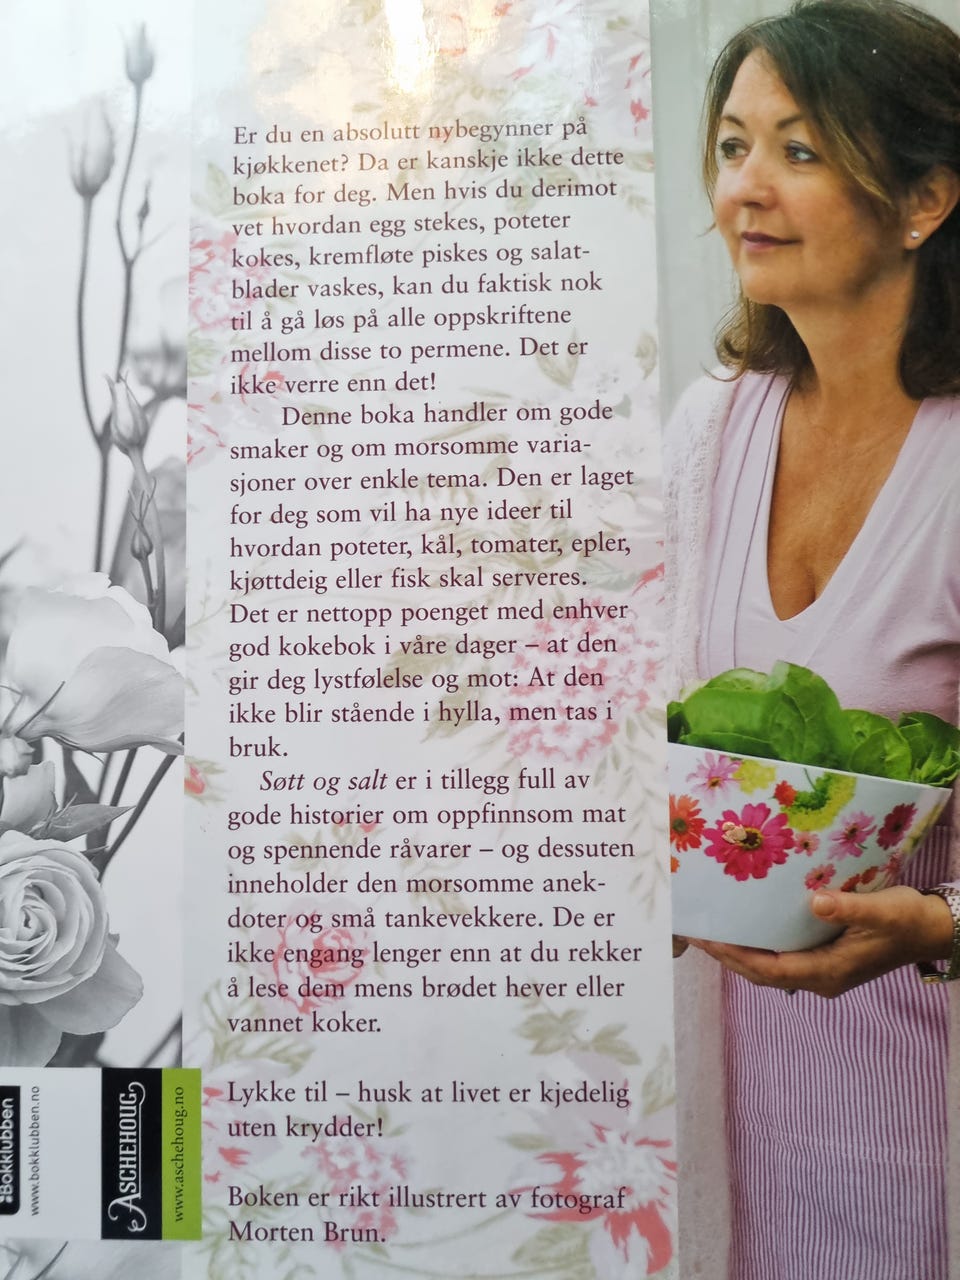 Er du en absolutt nybegynner på
kjøkkenet? Da er kanskje ikke dette
boka for deg. Men hvis du derimot
vet hvordan egg stekes, poteter
kokes, kremfløte piskes og salat-
blader vaskes, kan du faktisk nok
til å gå løs på alle oppskriftene
mellom disse to permene. Det er
ikke verre enn det!
Denne boka handler om gode
smaker og om morsomme varia-
sjoner over enkle tema. Den er laget
for deg som vil ha nye ideer til
hvordan poteter, kål, tomater, epler,
kjøttdeig eller fisk skal serveres.
Det er nettopp poenget med enhver
god kokebok i våre dager – at den
gir deg lystfølelse og mot: At den
ikke blir stående i hylla, men tas i
bruk.
Søtt og salt er i tillegg full av
gode historier om oppfinnsom mat
og spennende råvarer – og dessuten
inneholder den morsomme anek-
doter og små tankevekkere. De er
ikke engang lenger enn at du rekker
å lese dem mens brødet hever eller
vannet koker.
Lykke til – husk at livet er kjedelig
uten krydder!
Boken er rikt illustrert av fotograf
Morten Brun.
Bokklubben
www.bokklubben.no
ASCHEHOUG
www.aschehoug.no